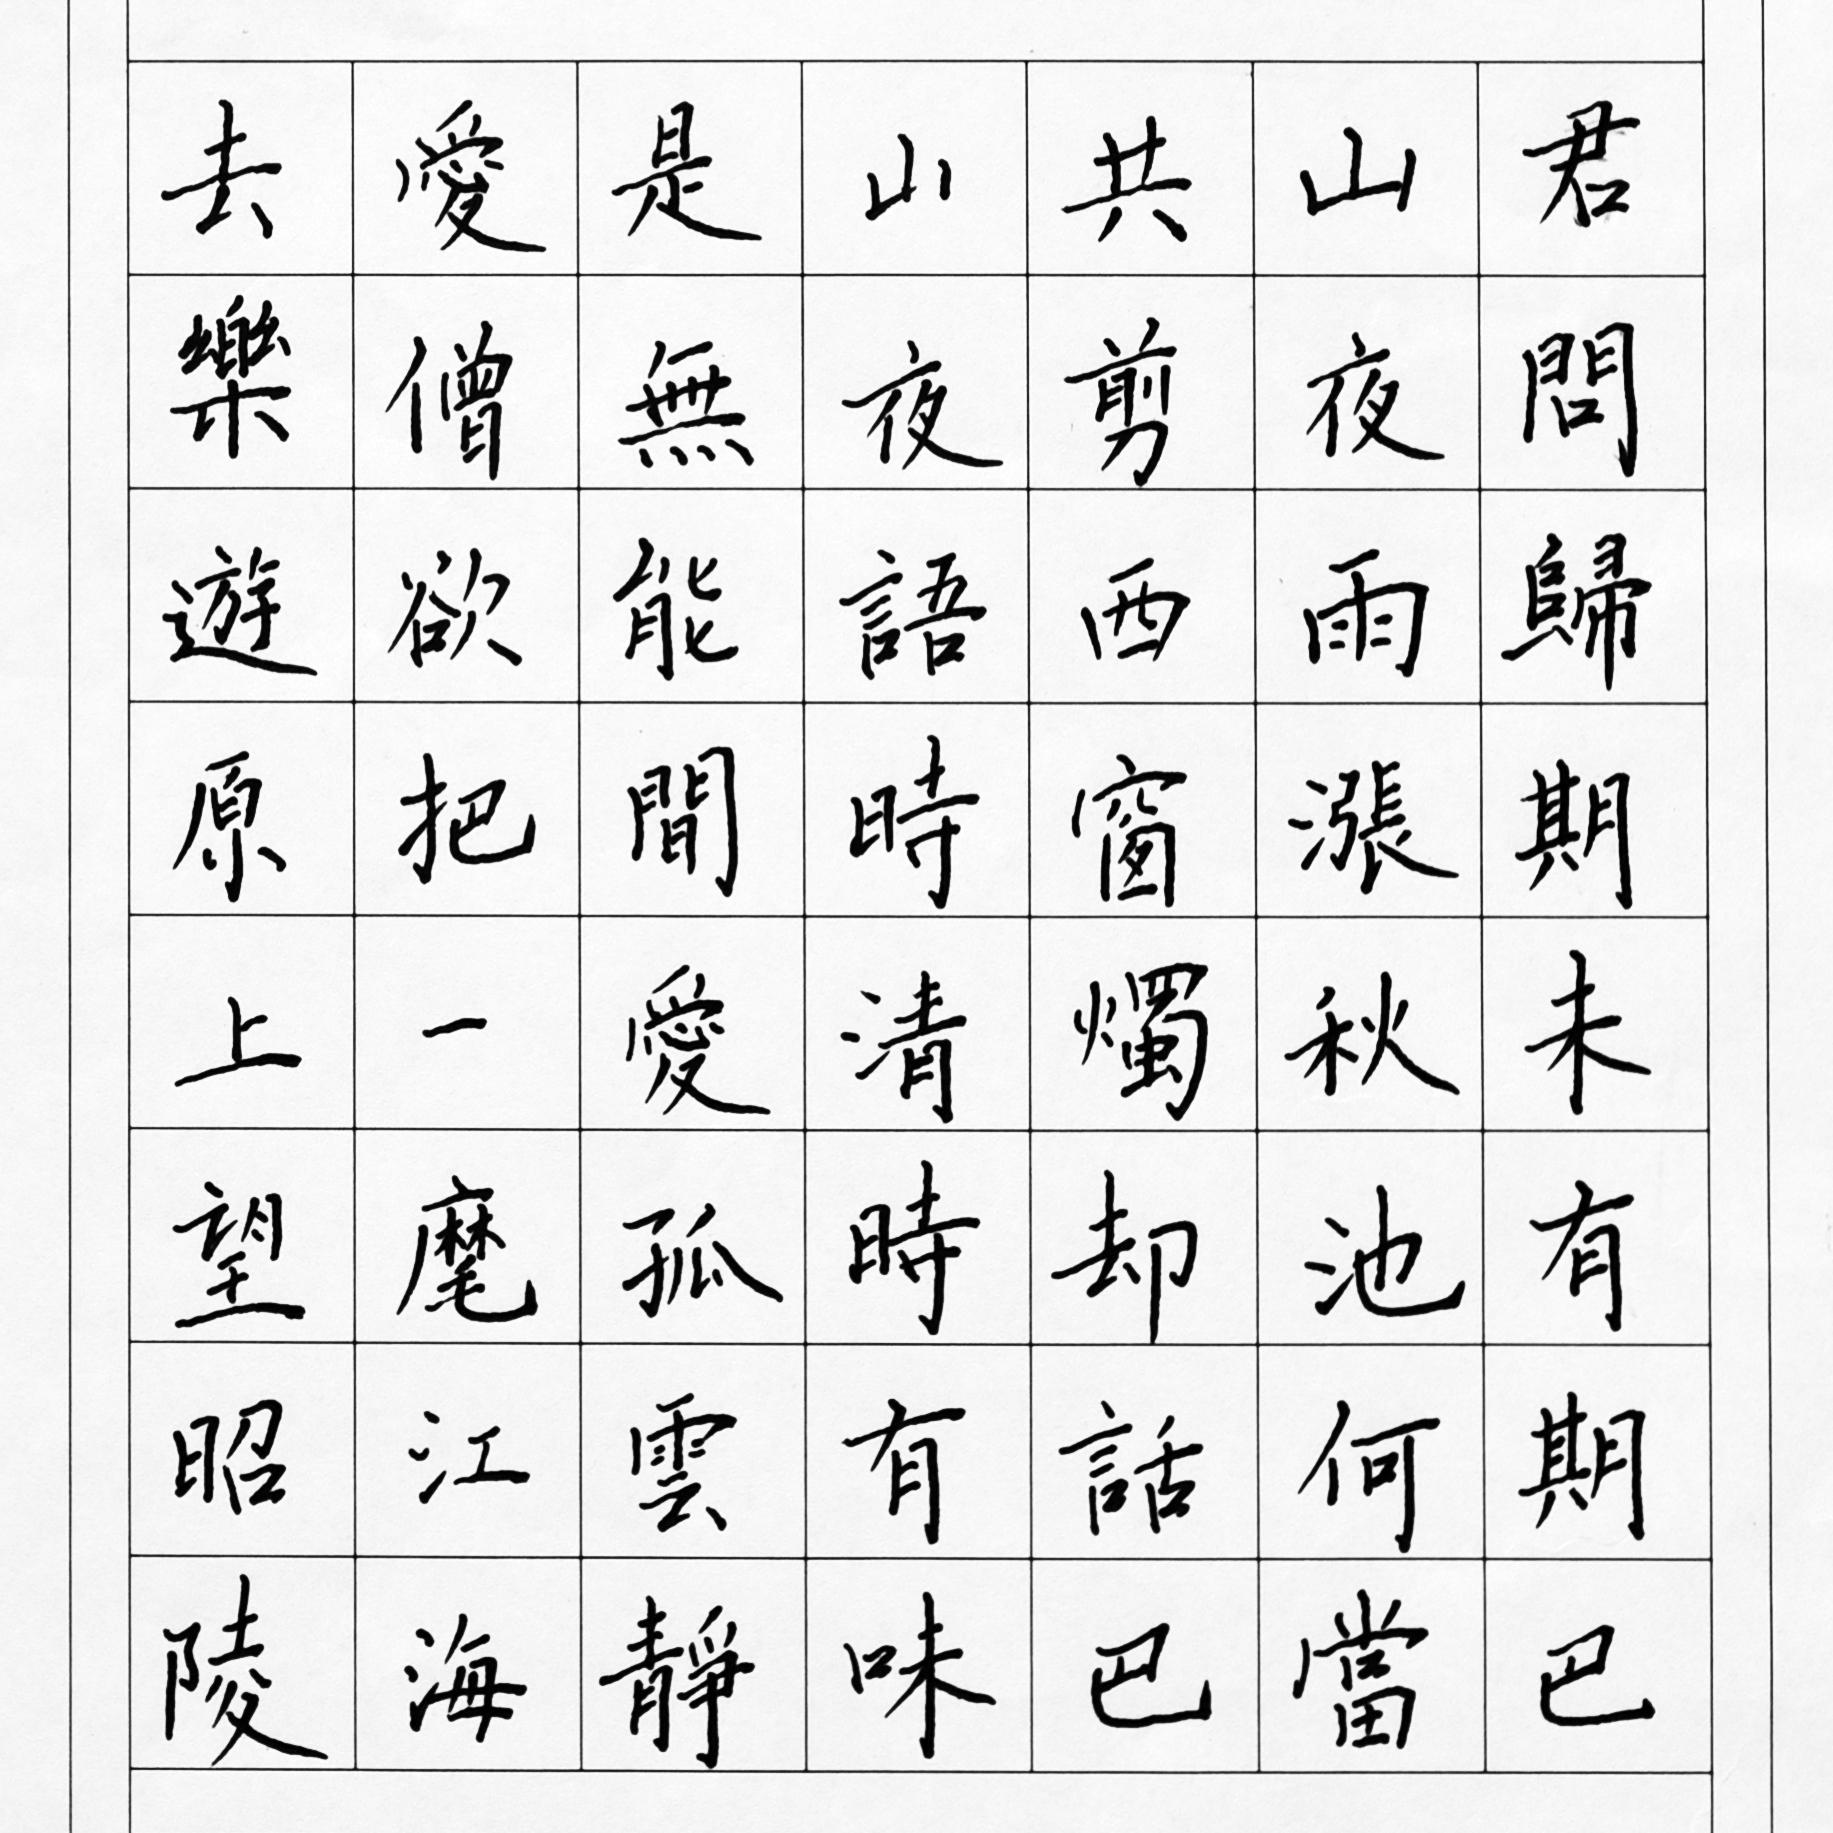 君問歸期未有期巴
山夜雨漲秋池何當
共剪西窗燭却話巴
山夜語時清時有味
是無能閒愛孤雲靜
愛僧欲把一麾江海
去樂遊原上望昭陵